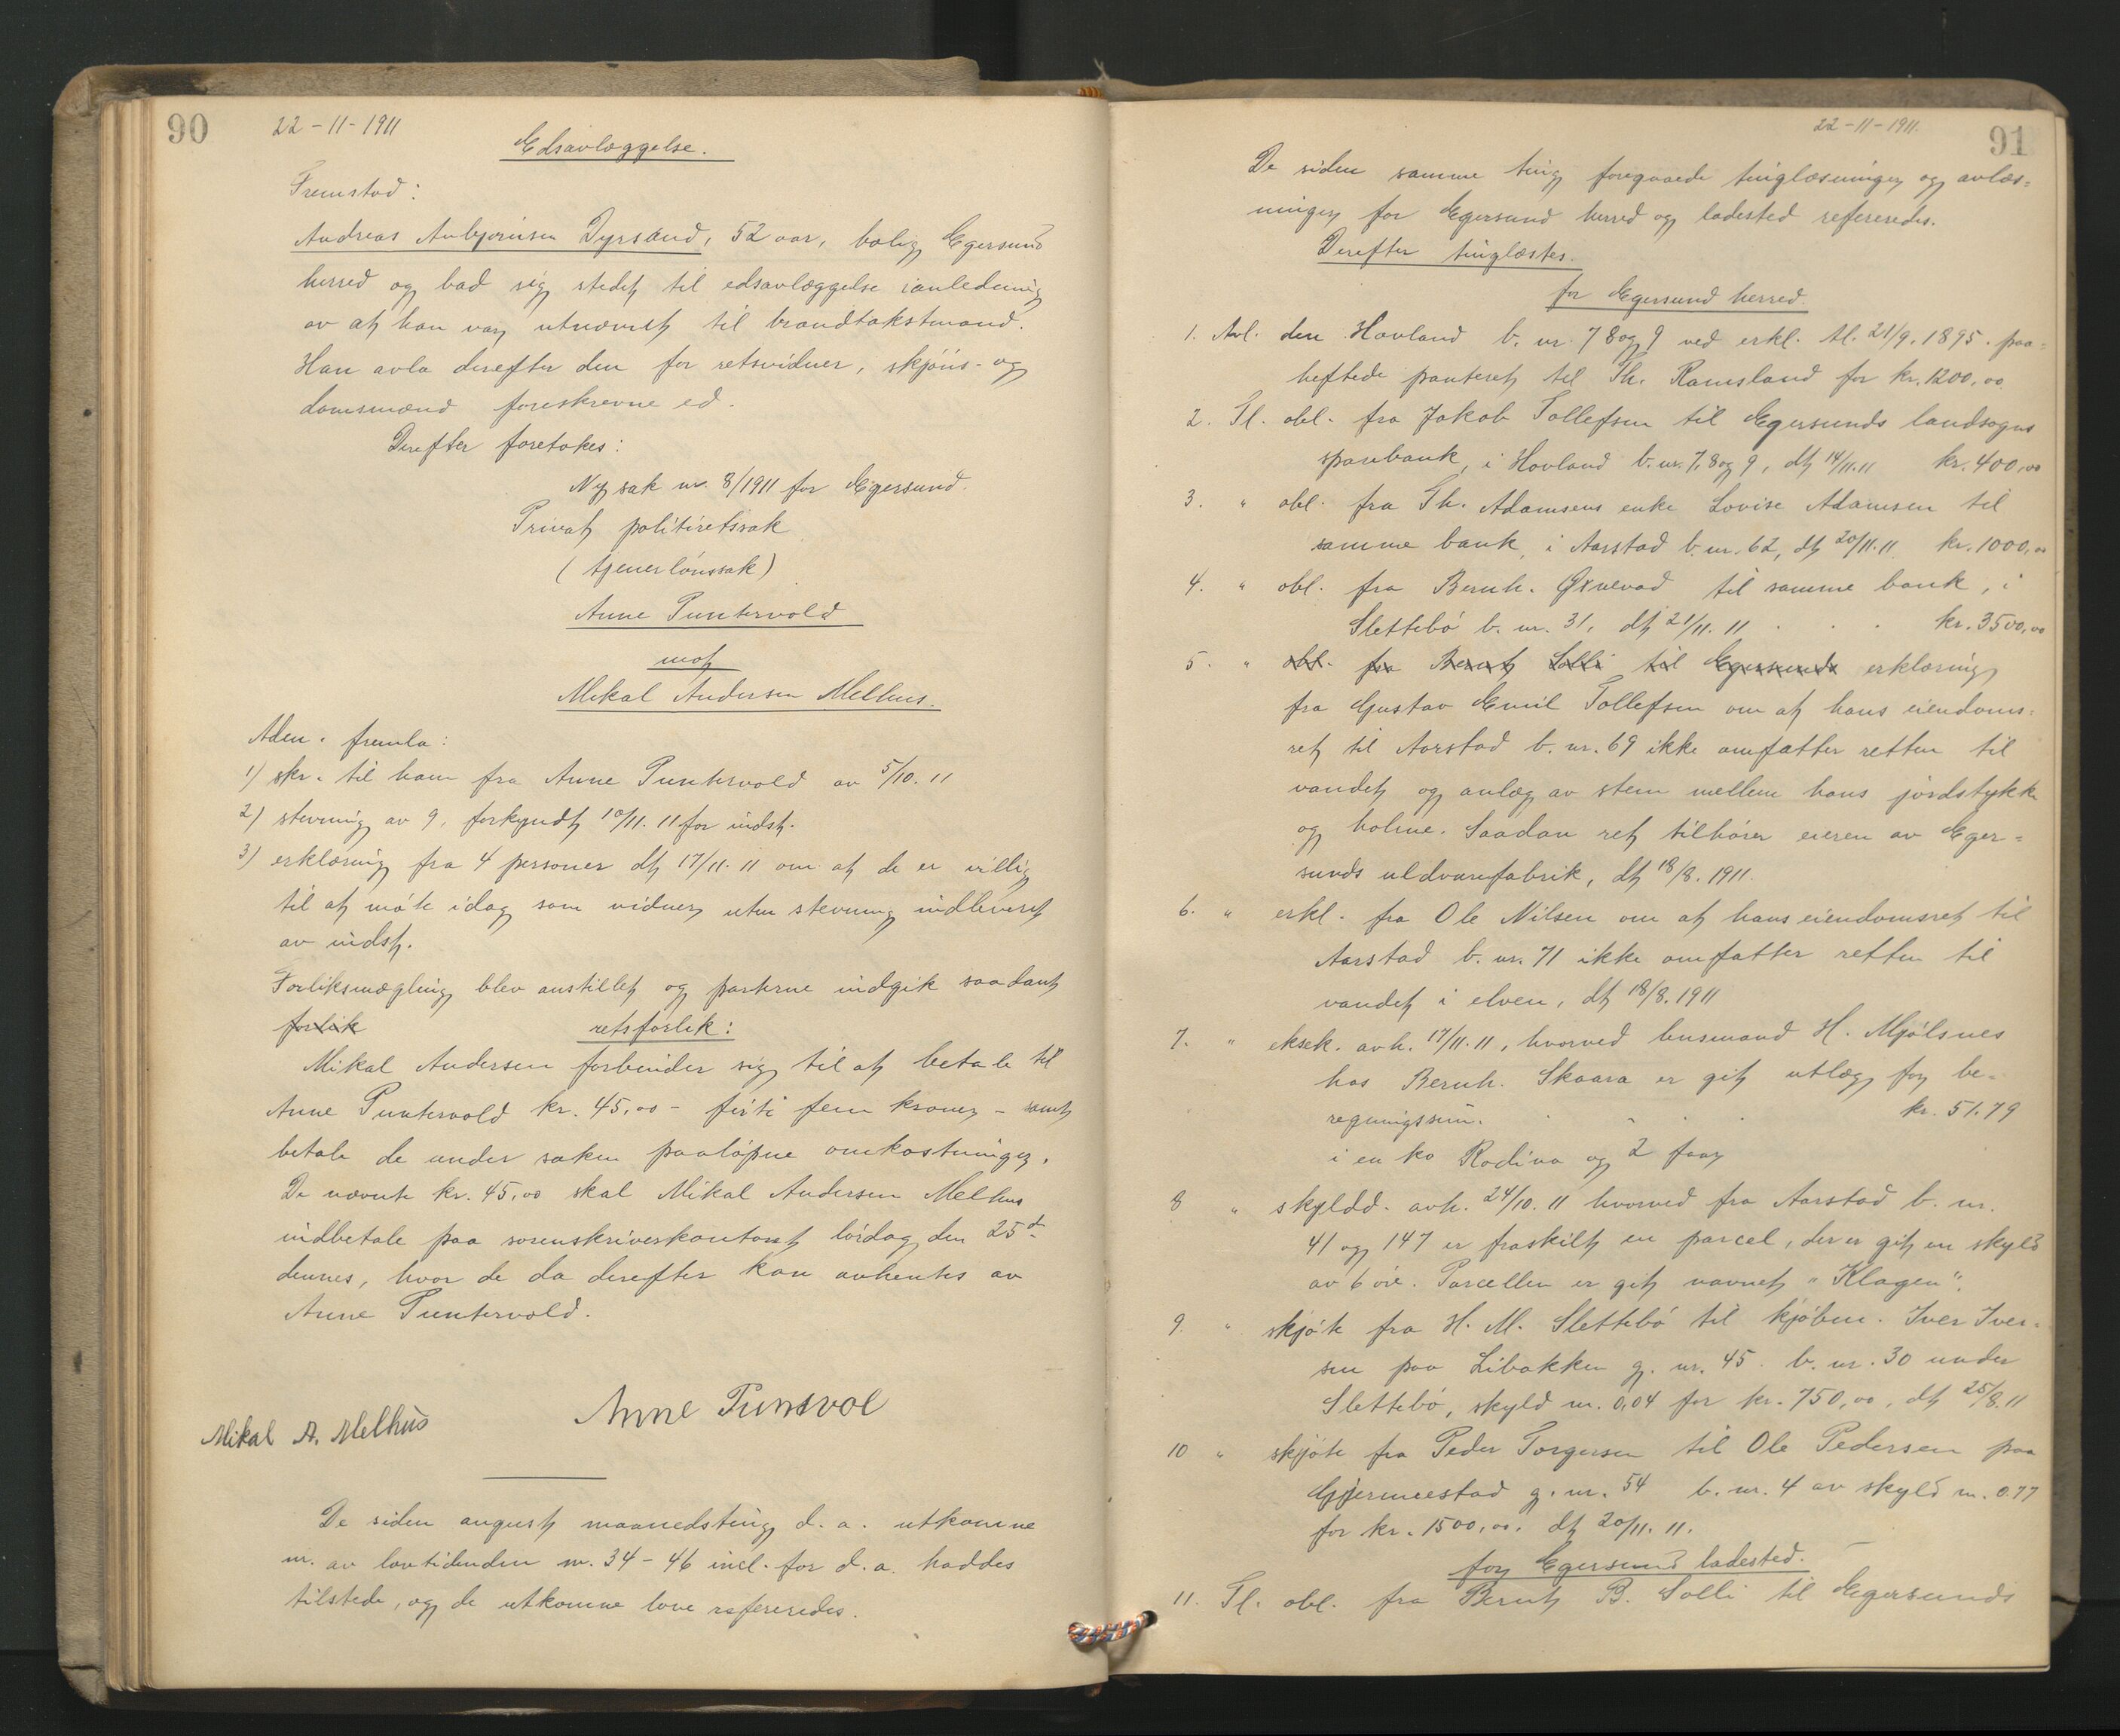 90
22-11-1911
Edsavlæggelse.
Fremstod:
Andreas Anbjørnsen Dyrsand, 52 aar, bolig Egersund
herred og bad sig stedet til edsavlæggelse i anledning
av at han var utnævnt til brandtakstmand.
Han avla derefter den for retsvidner, skjøns- og
domsmænd foreskrevne ed.
Derefter foretokes:
Ny sak nr. 8/1911 for Egersund.
Privat politiretssak
(tjenerlønssak)
Anne Puntervold
mot
Mikal Andersen Melhus.
Adm. fremla:
1) skr. til ham fra Anne Puntervold av 5/10.11
2) stevning av 9, forkyndt 10/11.11 for indst.
3) erklæring fra 4 personer dt 17/11.11 om at de er villig
til at møte idag som vidner uten stevning indleveret
av indst.
Forliksmægling blev anstillet og parterne indgik saadant
forlik retsforlik:
Mikal Andersen forbinder sig til at betale til
Anne Puntervold kr. 45,00 - firti fem kroner - samt
betale de under saken paaløpne omkostninger.
De nævnte kr. 45,00 skal Mikal Andersen Melhus
indbetale paa sorenskriverkontoret lørdag den 25d
dennes, hvor de da derefter kan avhentes av
Anne Puntervold.
Anne Punsvol
Mikal A. Melhus
De siden august maanedsting d.a. utkomne
nr. av lovtidenden nr. 34-46 incl. for d.a. haddes
tilstede, og de utkomne love refereredes.
22-11-1911.
91
De siden samme ting foregaaede tinglæsninger og avlæs-
ninger for Egersund herred og ladested refereredes.
Derefter tinglæstes.
for Egersund herred.
1. Avl. den Hovland b. nr. 7 8 og 9 ved erkl. tl. 21/9.1895. paa-
heftede panteret til Th. Ramsland for kr. 1200,00
2. Tl. obl. fra Jakob Tollefsen til Egersunds landsogns
sparebank, i Hovland b. nr. 7, 8 og 9, dt 14/11.11 kr. 400,00
3. " obl. fra Th. Adamsens enke Lovise Adamsen til
samme bank, i Aarstad b. nr. 62, dt 20/11.11. kr. 1000,00
4. " obl. fra Bernh. Øxnevad til samme bank, i
Slettebø b. nr. 31, dt 21/11.11 . . . kr. 3500,00
5. " obl. fra Bernt Solli til Egersunds erklæring
fra Gustav Emil Tollefsen om at hans eiendoms-
ret til Aarstad b. nr. 69 ikke omfatter retten til
vandet og anlæg av stem mellem hans jordstykke
og holme. Saadan ret tilhører eieren av Eger-
sunds uldvarefabrik, dt 18/8.1911.
6. " erkl. fra Ole Nilsen om at hans eiendomsret til
Aarstad b. nr. 71 ikke omfatter retten til
vandet i elven, dt 18/8.1911
7. " eksek. avh. 17/11.11, hvorved husmand H. Mjølsnes
hos Bernh. Skaara er git utlæg for be-
regningssum. . . . . kr. 51.79
i en ko Rodina og 2 faar
8 " skyldd. avh. 24/10.11 hvorved fra Aarstad b. nr.
41 og 147 er fraskilt en parcel, der er git en skyld
av 6 øre. Parcellen er git navnet "Klagen".
9. " skjøte fra H. M. Slettebø til kjøbm. Iver Iver-
sen paa Libakken g. nr. 45 b. nr. 30 under
Slettebø, skyld m. 0,04 for kr. 750,00, dt 25/8.11
10 " skjøte fra Peder Torgersen til Ole Pedersen paa
Gjermestad g. nr. 54 b. nr. 4 av skyld m. 0.77
for kr. 1500,00. dt 20/11.11.
for Egersund ladested.
11. Tl. obl. fra Bernt B. Solli til Egersunds